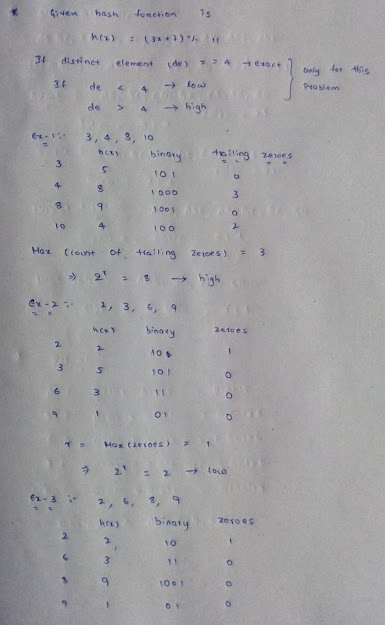 * Given hash function is
h(x) = (3x+7) % 11
If distinct element (de) = = 4 → exact
If de < 4 → low
de > 4 → high
only for this problem
Ex-1 :- 3, 4, 8, 10
h(x) binary trailing zeroes
3 5 101 0
4 8 1000 3
8 9 1001 0
10 4 100 2
Max (count of trailing zeroes) = 3
⇒ 2^r = 8 → high
Ex-2 :- 2, 3, 6, 9
h(x) binary zeroes
2 2 10 1
3 5 101 0
6 3 11 0
9 1 01 0
r = Max (zeroes) = 1
⇒ 2^1 = 2 → low
Ex-3 :- 2, 6, 8, 9
h(x) binary zeroes
2 2 10 1
6 3 11 0
8 9 1001 0
9 1 01 0